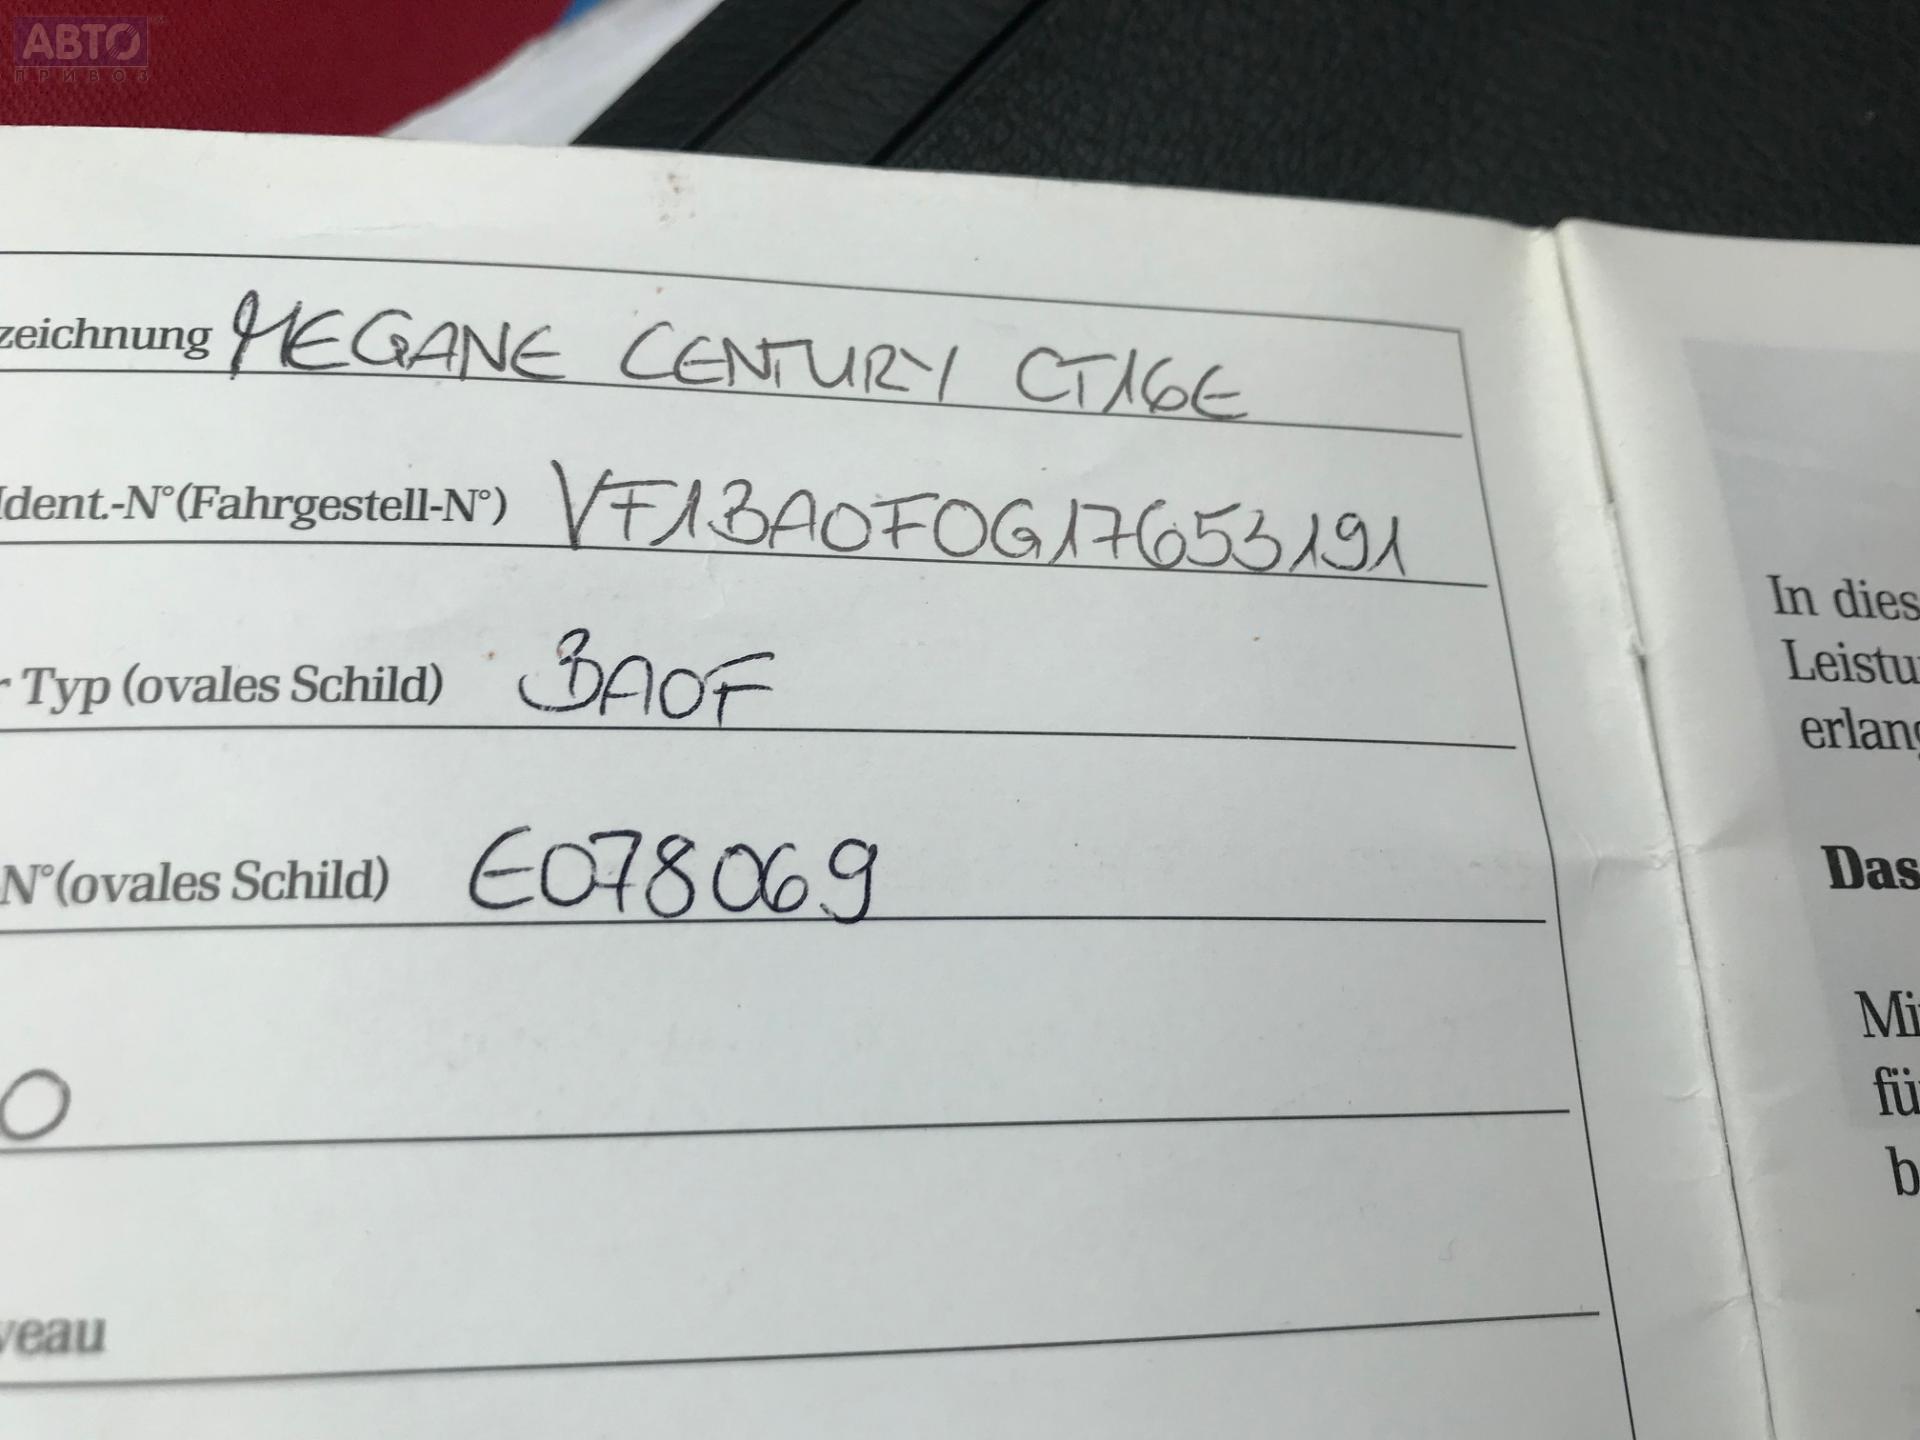 АВТО
ПРИВОЗ
zeichnung MEGANE CENTURY CT16E
Ident.-N°(Fahrgestell-N°) VF1BA0F0G17653191
r Typ (ovales Schild) BA0F
N°(ovales Schild) E078069
0
veau
In dies
Leistu
erlang
Das
Mi
fü
b